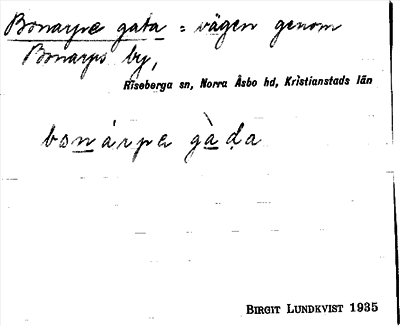 Bonarps gata = vägen genom
Bonarps by,
Riseberga sn, Norra Åsbo hd, Kristianstads län
bonárpa gàḍa
BIRGIT LUNDKVIST 1935